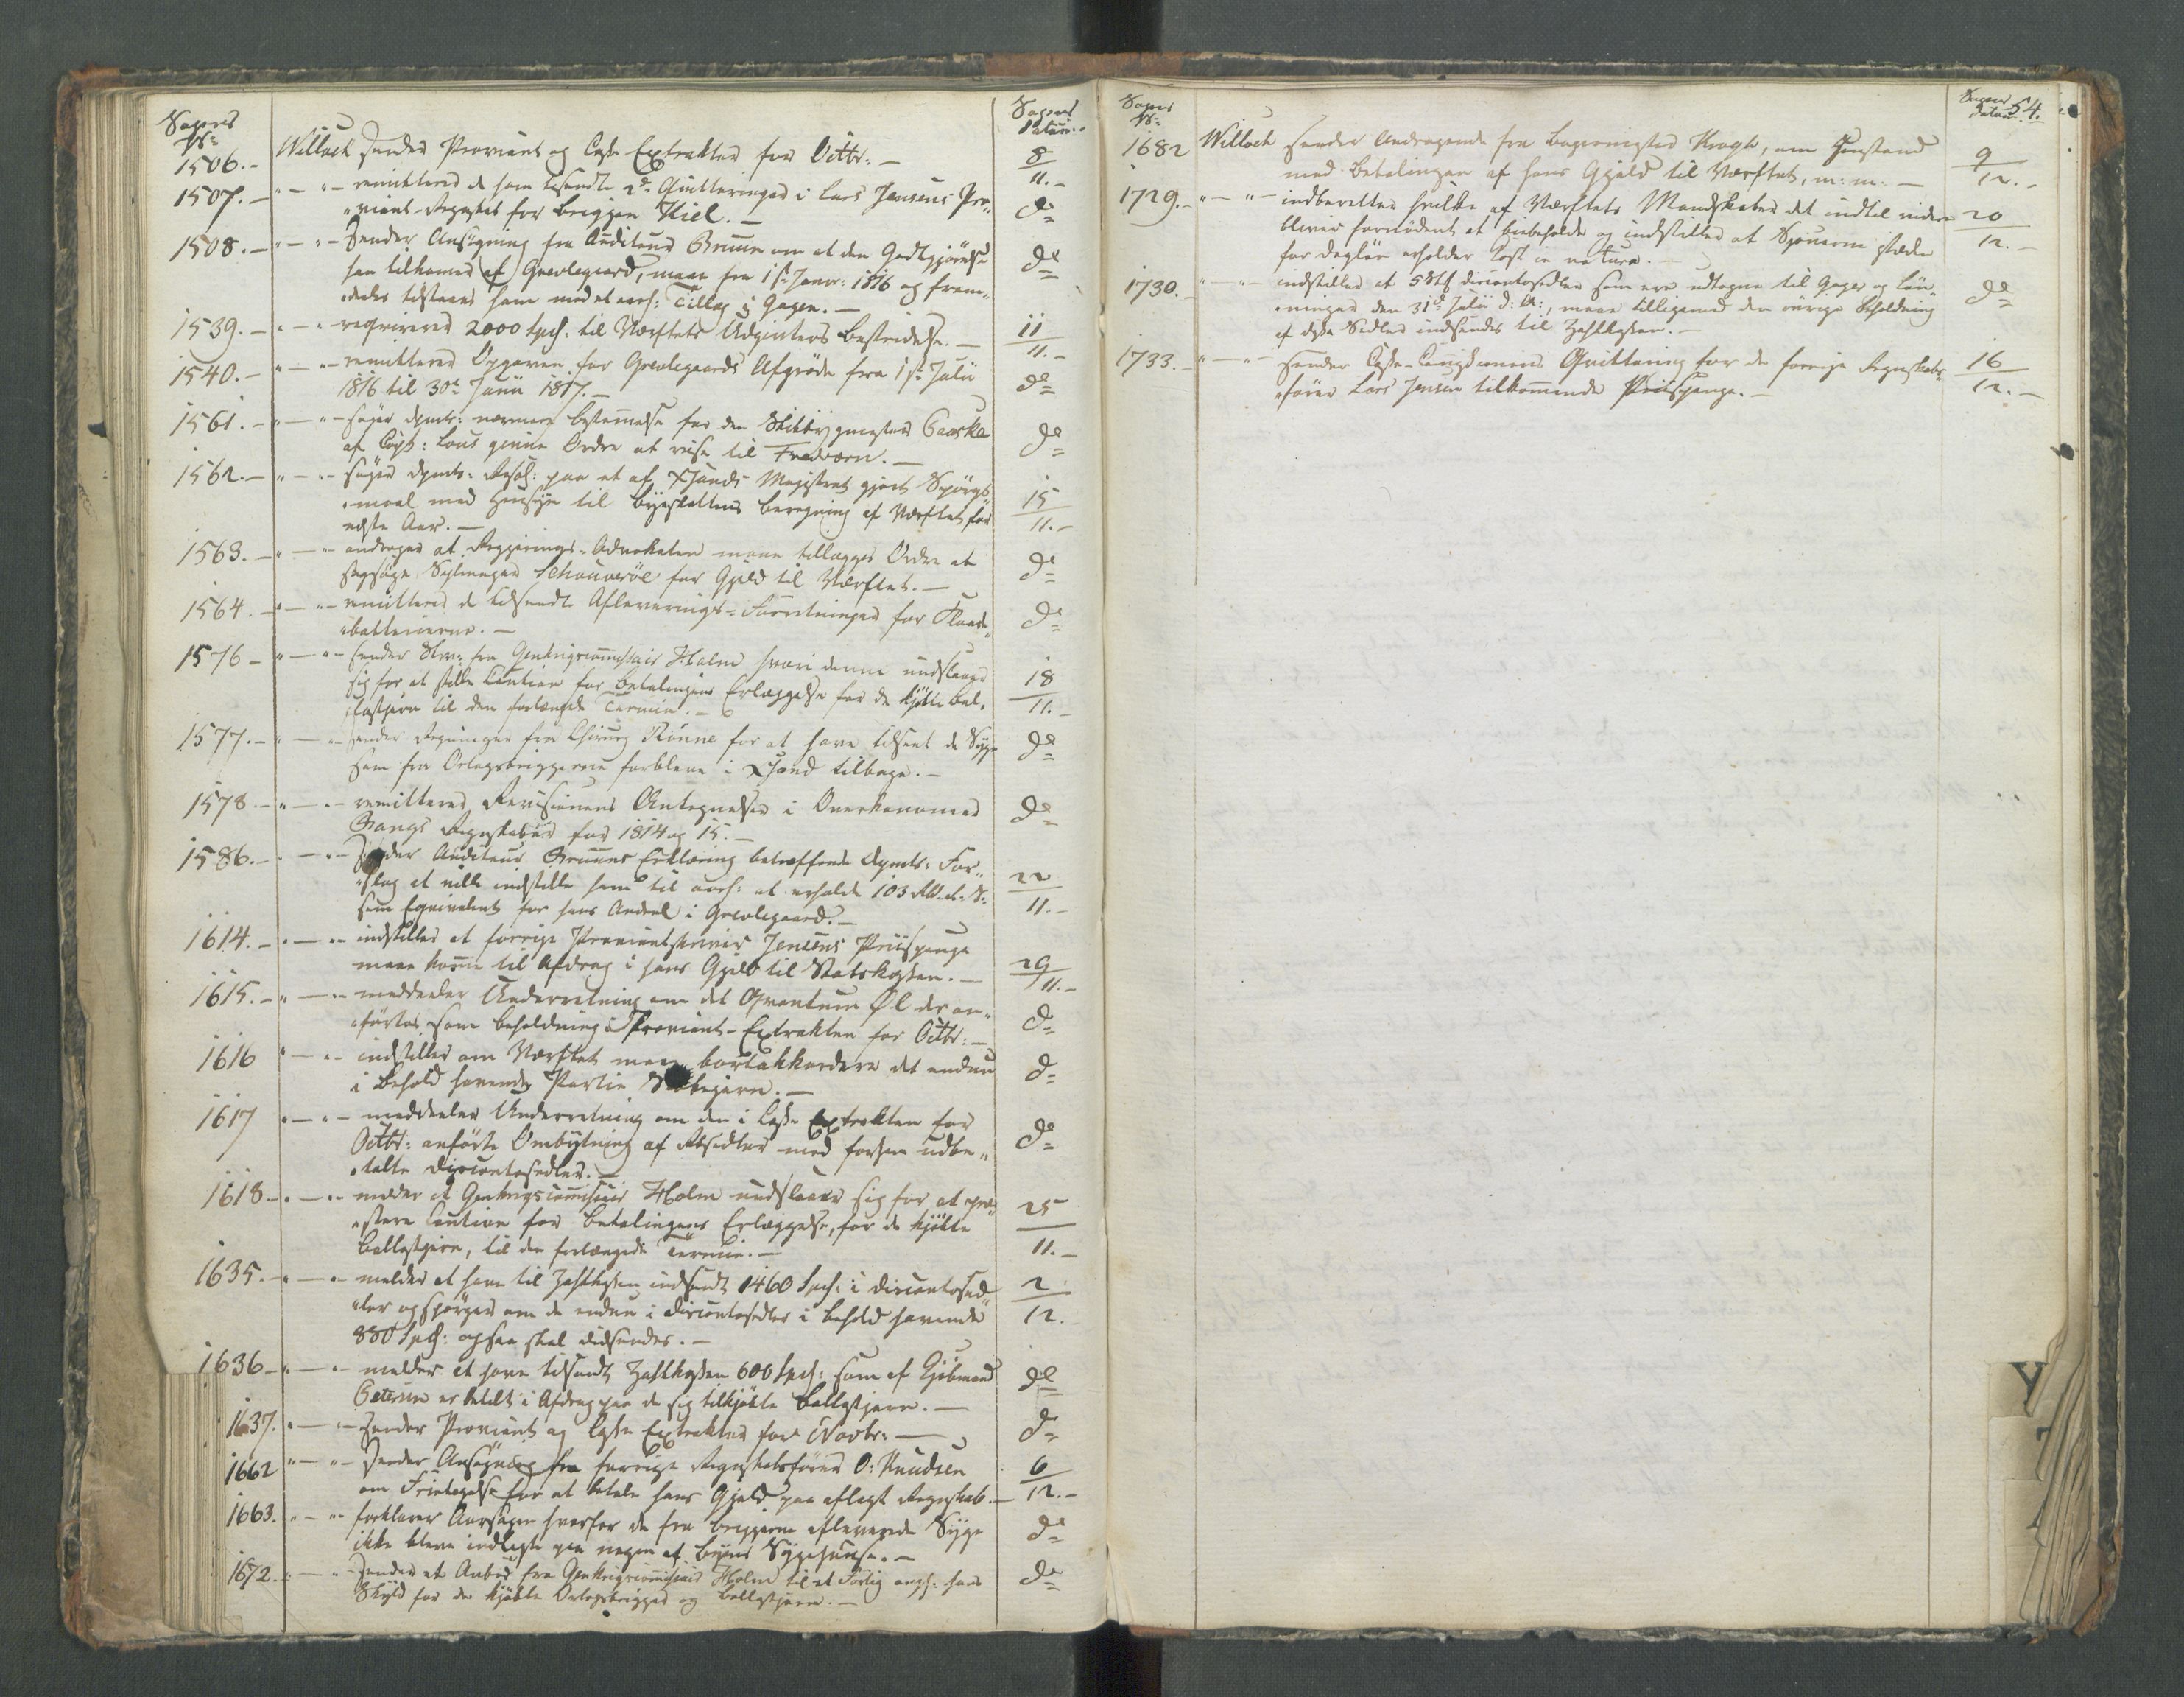 Sagens
No
Sagens
Datum.
1506.- Willoch sender Proviant og Casse Extrakter for Octbr: - 8/11.-
1507.- " - " - remitterer de ham tilsendte 2de Qvitteringer i Lars Jensens Pro„
„viant-Regnskab for Briggen Kiel. - do
1508.- " - " - Sender Ansøgning fra Auditeur Bruun om at den Godtgjørelse
han tilkommer af Grevlegaard, maae fra 1ste Janr: 1816 og frem„
„deles tilstaaes ham med et aarl: Tillæg i Gagen. - do
1539.- " - " - reqvirerer 2000 Spd: til Værftets Udgivters Bestridelse. - 11/11.-
1540.- " - " - remitterer Opgaven for Grevlegaards Afgrøde fra 1ste Julii
1816 til 30te Junii 1817. - do
1561.- " - " - søger Dpmts: nærmere Bestemmelse for den Skibbygmester
af Capt: Lous givne Ordre at reise til Fredværn. - do
1562.- " - " - søger Dpmts: Resol: paa et af Xsands Magistrat gjort Spørgs„
„maal med Hensyn til Byeskattens Beregning af Værftet for
næste Aar. - 15/11.-
1563.- " - " - andrager at Regjerings-Advokaten maae tillægges Ordre at
sagsøge Schouverøe for Gjeld til Værftet. - do
1564.- " - " - remitterer de tilsendte Afleverings-Forretninger for
„batterierne. - do
1576 - " - " - sender Skr: fra Genkrigscommissair Holm hvori denne undslaaer
sig for at stille Caution for Betalingens Erlæggelse for de kjøbte Bal„
lastjern til den forlængede Termin. - 18/11.-
1577.- " - " - sender Regninger fra Chirurg Rønne for at have tilseet de Syge
som fra Orlogsbriggerne forbleve i Xsand tilbage. - do
1578 - " - " - remitterer Revisionens Antegnelser i Oeconomed
Bangs Regnskaber for 1814 og 15. - do
1586.- " - " - Sender Auditeur Bruuns Erklæring betræffende Dpmts: For„
„slag at ville indstille ham til aarl: at erholde 103
som Eqvivalent for hans Andeel i Grevlegaard. - 22/11.-
1614.- " - " - indstiller at forrige Proviantskriver Jensens Priispenge
maae komme til Afdrag i hans Gjeld til Statskassen. - 29/11.-
1615.- " - " - meddeeler Underretning om det Qvantum Øl der an„
„førtes som Beholdning i Proviant-Extrakten for Octbr: - do
1616 " - " - indstiller om Værftet maae bortakkordere det endnu
i Behold havende Partie - do
1617 " - " - meddeeler Underretning om den i Casse Extrakten for
Octbr: anførte Ombytning af Rbsedler med forhen udbe„
„talte Discontosedler. - do
1618 - " - " - melder at Genkrigscommissair Holm undslaaer sig for at præ„
„stere Caution for Betalingens Erlæggelse, for de kjøbte
Ballastjern, til den forlængede Termin. - 25/11.-
1635.- " - " - melder at have til Zahlkassen indsendt 1460 Spd: i Discontosed„
„ler og spørger om de endnu i Discontosedler i Behold havende
880 Spd: ogsaa skal indsendes. - 2/12.
1636 - " - " - melder at have tilsendt Zahlkassen 600 Spd: som af Kjøbmand
Petersen er betalt i Afdrag paa de sig tilkjøbte Ballastjern. - do
1637. " - " - Sender Proviant og Casse Extrakter for Novbr: - do
1662 " - " - Sender Ansøgning fra forrige Regnskabsfører O: Knudsen
om Fritagelse for at betale hans Gjeld paa aflagt Regnskab. - 6/12.-
1663. " - " - forklarer Aarsagen hvorfor de fra Briggerne afleverede Syge
ikke bleve indlagte paa nogen af Byens Sygehuuse. - do
1672. " - " - sender et Anbud fra Genkrigscommissair Holm til et Forlig angl: hans
Skyld for de kjøbte Orlogsbrigger og Ballastjern. - do
Sagens
No
Sagens
Datum
54.
1682 Willoch sender Andragende fra Kragh, om Henstand
med Betalingen af hans Gjeld til Værftet, m: m. - 9/12.-
1729.- " - " - indberetter hvilke af Værftets Mandskaber det indtil videre
bliver fornødent at bibeholde og indstiller at
for Dagløn erholder Kost in natura. - 20/12.-
1730. " - " - indstiller at Discontosedler som ere udtagne til Gager og Løn„
„ninger den 31te Julii d: A:, maae tilligemed den øvrige Beholdning
af disse Sedler indsendes til Zahlkassen. - do
1733.- " - " - sender Casse-Commissionens Qvittering for de forrige Regnskabs„
„fører Lars Jensen tilkommende Priispenge. - 16/12.-